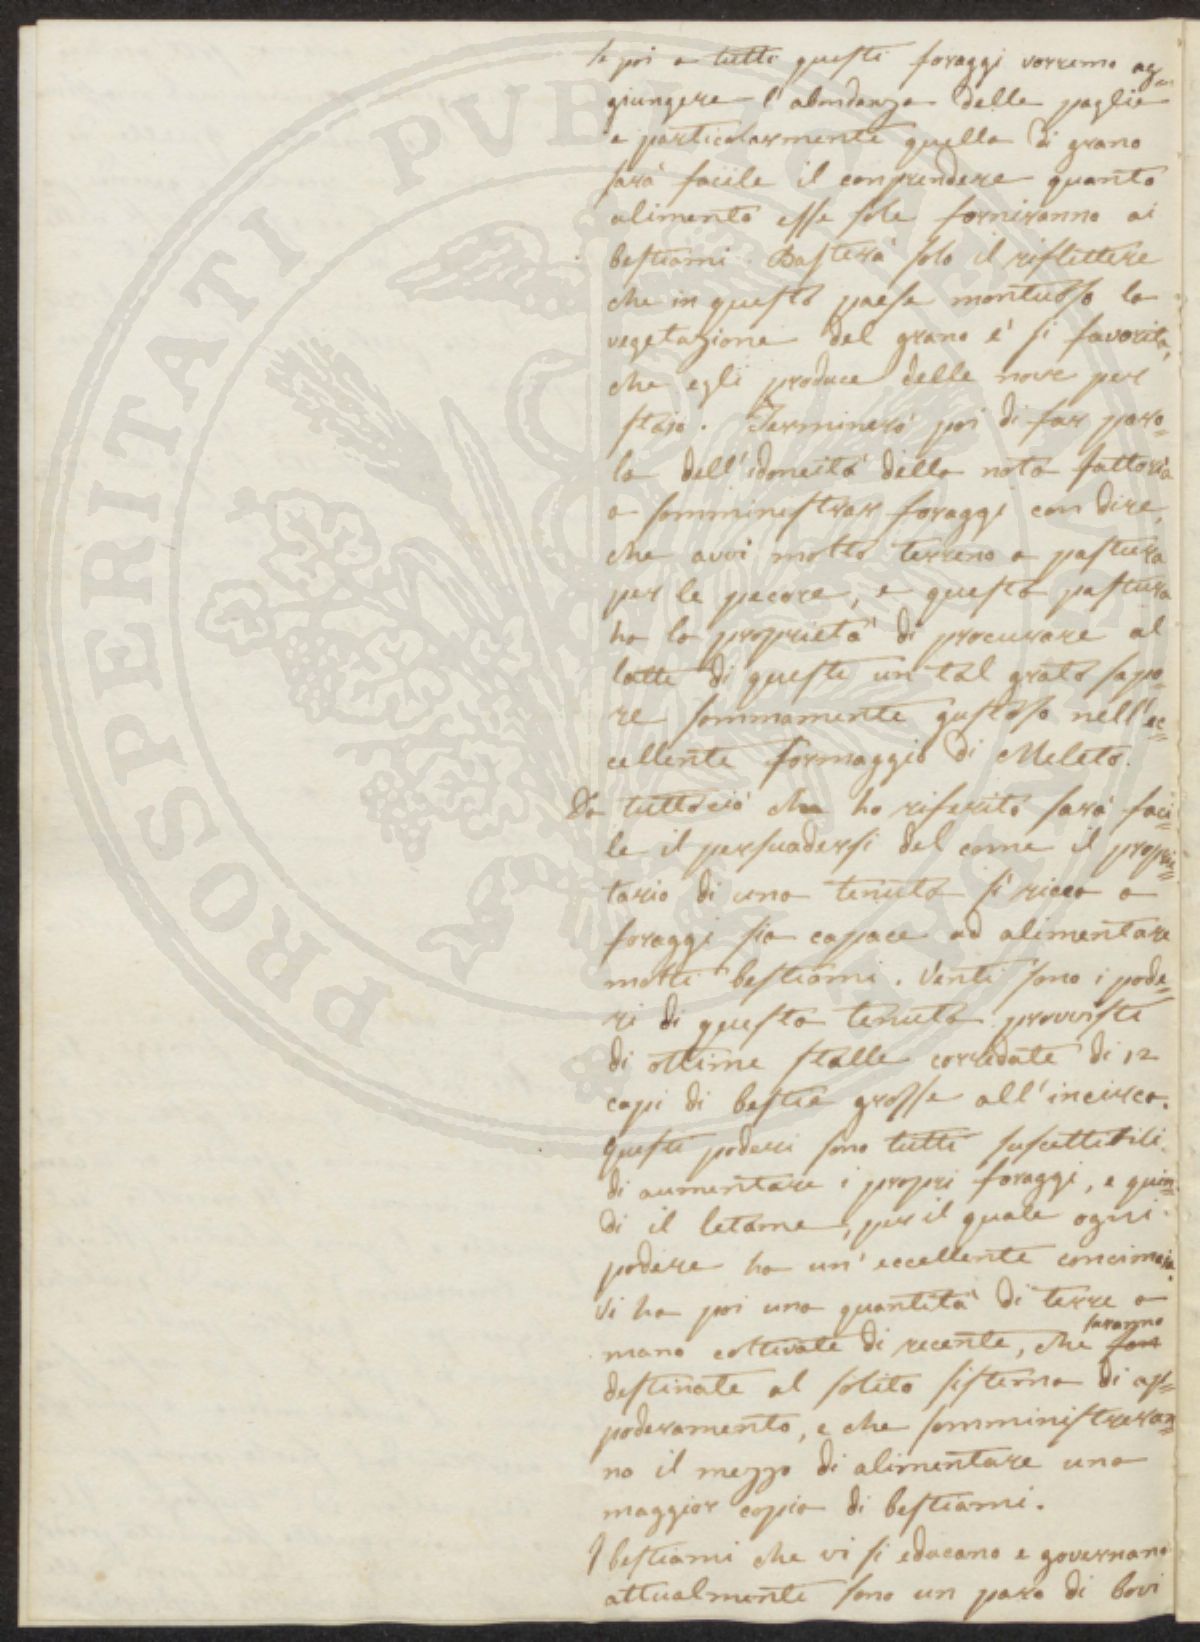 Se poi a tutti questi foraggi vorremo ag=
giungere l'abondanza delle paglie
e particolarmente quella di grano
sarà facile il conprendere quanto
alimento esse sole forniranno ai
bestiami. Basterà solo il riflettere
che in questo paese montuoso la
vegetazione del grano è si favorita,
che egli produce delle nove per
staio. Terminerò poi di far paro=
la dell'idoneità della nota fattoria
a somministrar foraggi con dire,
che avvi molto terreno a pastura
per le pecore, e questa pastura
ha la proprietà di procurare al
latte di queste un tal grato sapo=
re sommamente gustoso nell'ec=
cellente formaggio di Meleto.
Da tuttociò che ho riferito sarà faci=
le il persuadersi del come il proprie=
tario di una tenuta sì ricca a
foraggi sia capace ad alimentare
molti bestiami. Venti sono i pode=
ri di questa tenuta provvisti
di ottime stalle corredate di 12
capi di bestie grosse all'incirca.
Questi poderi sono tutti suscettibili
di aumentare i propri foraggi, e quin=
di il letame, per il quale ogni
podere ha un'eccellente concimaia.
Vi ha poi una quantità di terre a
mano coltivate di recente, che saranno
destinate al solito sistema di ap=
poderamento, e che somministreran=
no il mezzo di alimentare una
maggior copia di bestiami.
I bestiami che vi si educano e governano
attualmente sono un paro di bovi
PROSPERITATI PUBLICAE